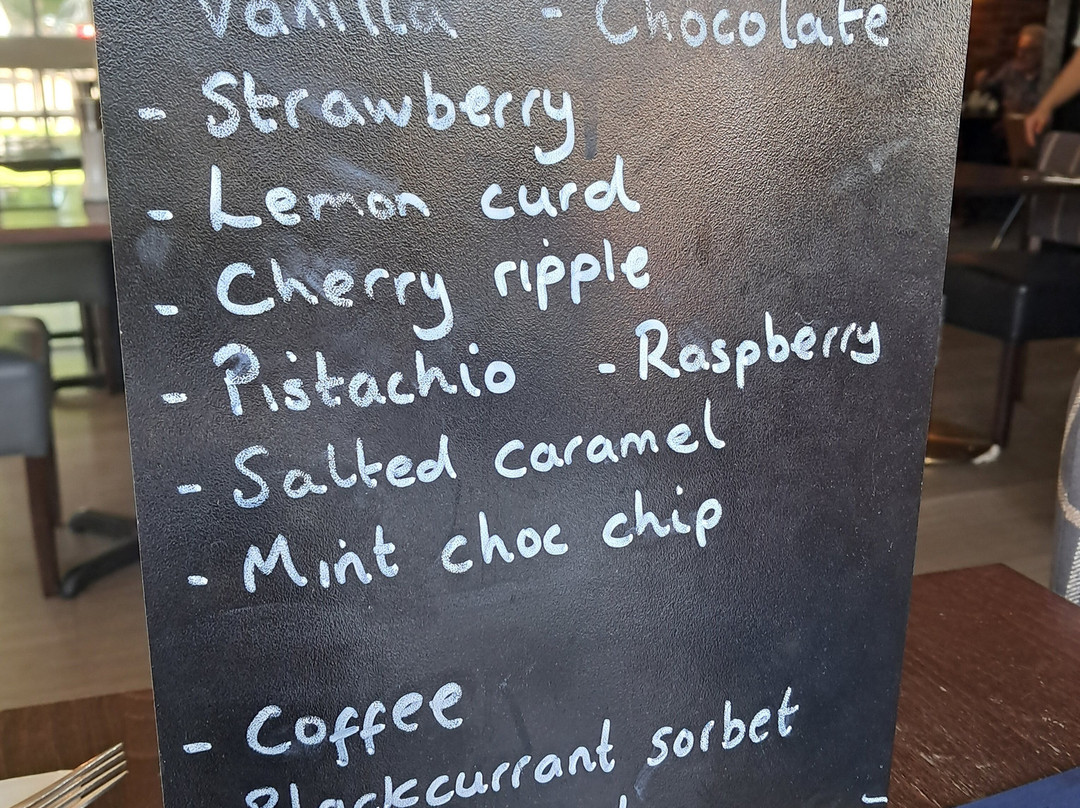 Vanilla - Chocolate
- Strawberry
- Lemon curd
- Cherry ripple
- Pistachio - Raspberry
- Salted caramel
- Mint choc chip
- Coffee
Blackcurrant sorbet